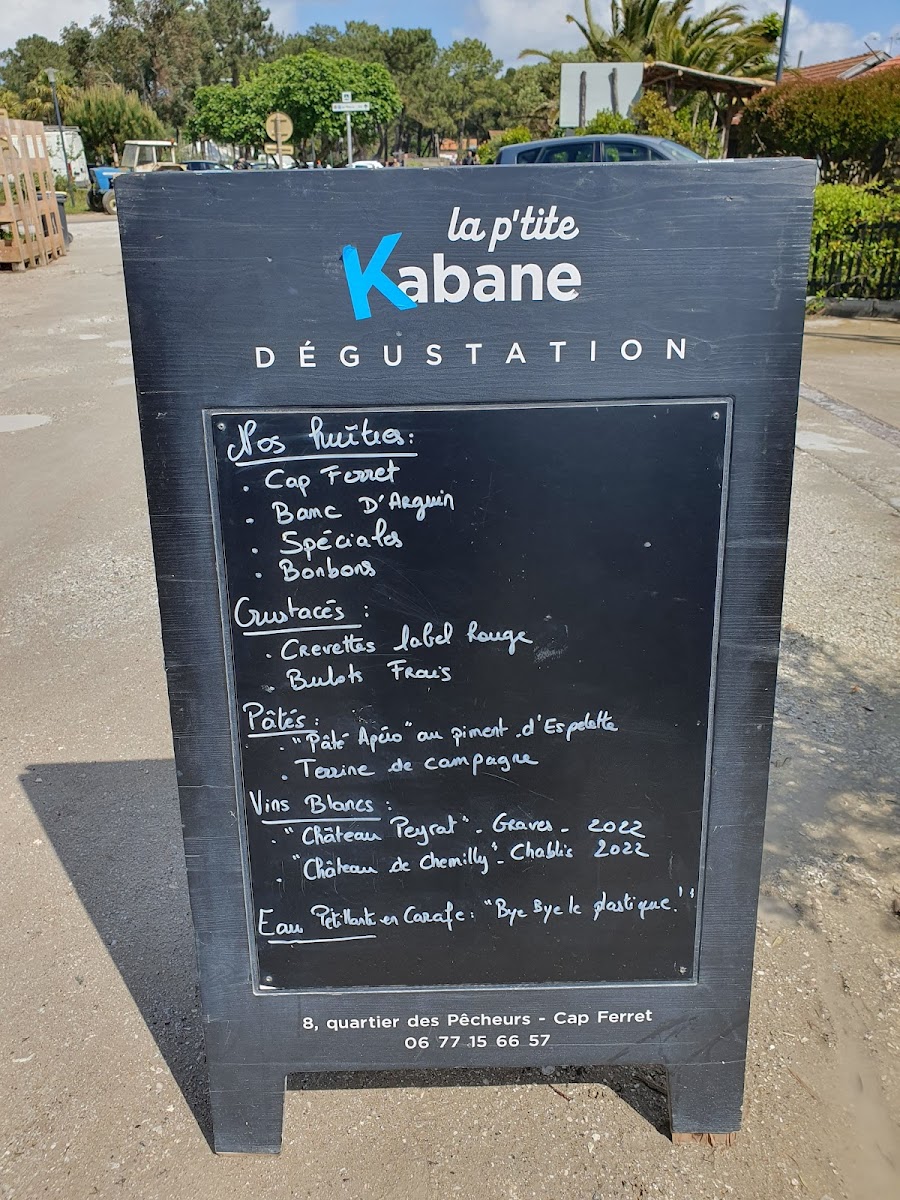 la p'tite
Kabane
DÉGUSTATION
Nos huîtres :
. Cap Ferret
. Banc D'Arguin
. Spéciales
. Bonbons
Crustacés :
. Crevettes label Rouge
. Bulots Frais
Pâtés :
. "Pâté Apéro" au piment d'Espelette
. Terrine de campagne
Vins Blancs :
. "Château Peyrat" - Graves - 2022
. "Château de Chemilly" - Chablis 2022
Eau Pétillante en Carafe : "Bye Bye le plastique !"
8, quartier des Pêcheurs - Cap Ferret
06 77 15 66 57